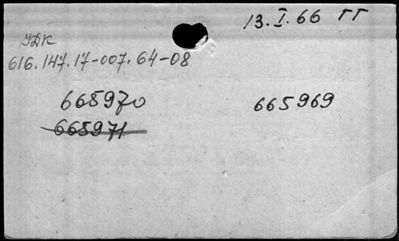 13.I.66 ГГ
УДК
616.147.17-007.64-08
665970 665969
665971